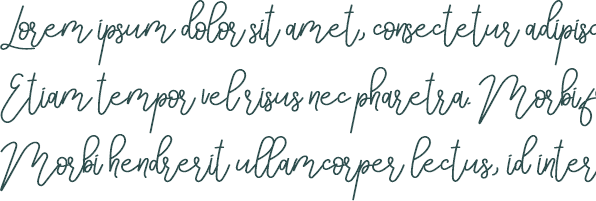 Lorem ipsum dolor sit amet, consectetur adipisc
Etiam tempor vel risus nec pharetra. Morbi f
Morbi hendrerit ullamcorper lectus, id inter